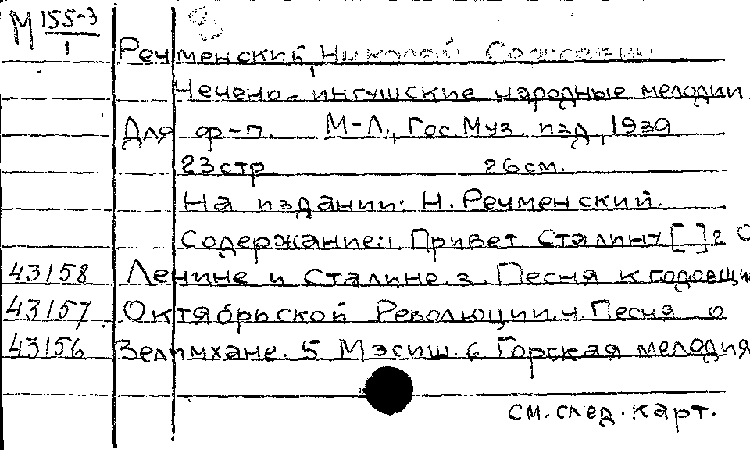 М 155-3
1
Речменский, Николай Сергеевич
Чечено-ингушские народные мелодии
Для ф-п. М-Л., Гос. Муз изд, 1939
23стр 26см.
На издании: Н. Речменский.
Содержание: 1. Привет Сталину [ ] 2 О
43158 Ленине и Сталине. 3. Песня к годовщи
43157 Октябрьской Революции. 4. Песня о
43156 Зелимхане. 5 Мэсиш. 6 Горская мелодия
см. след. карт.